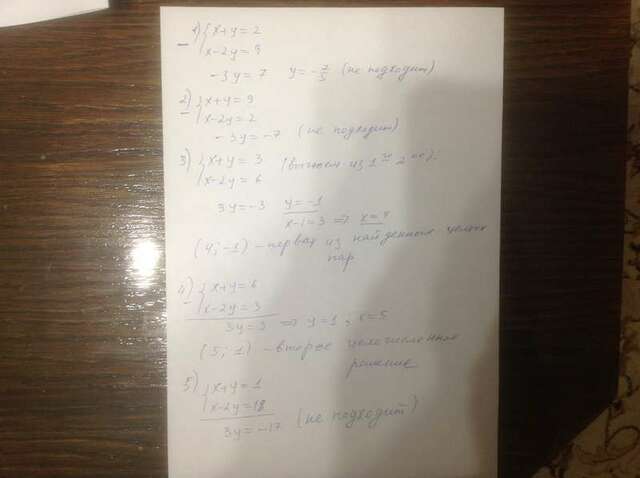 1) { x+y = 2
− { x-2y = 9
-3y = 7 y = -7/3 (не подходит)
2) { x+y = 9
− { x-2y = 2
- 3y = -7 (не подходит)
3) { x+y = 3 (вычтем из 1 2):
{ x-2y = 6
3y = -3 y = -1
x-1 = 3 ⇒ x = 4
(4; -1) - первая из найденных целых
пар
4) { x+y = 6
− { x-2y = 3
3y = 3 ⇒ y = 1 ; x = 5
(5; 1) - второе целочисленное
решение
5) { x+y = 1
{ x-2y = 18
3y = -17 (не подходит)